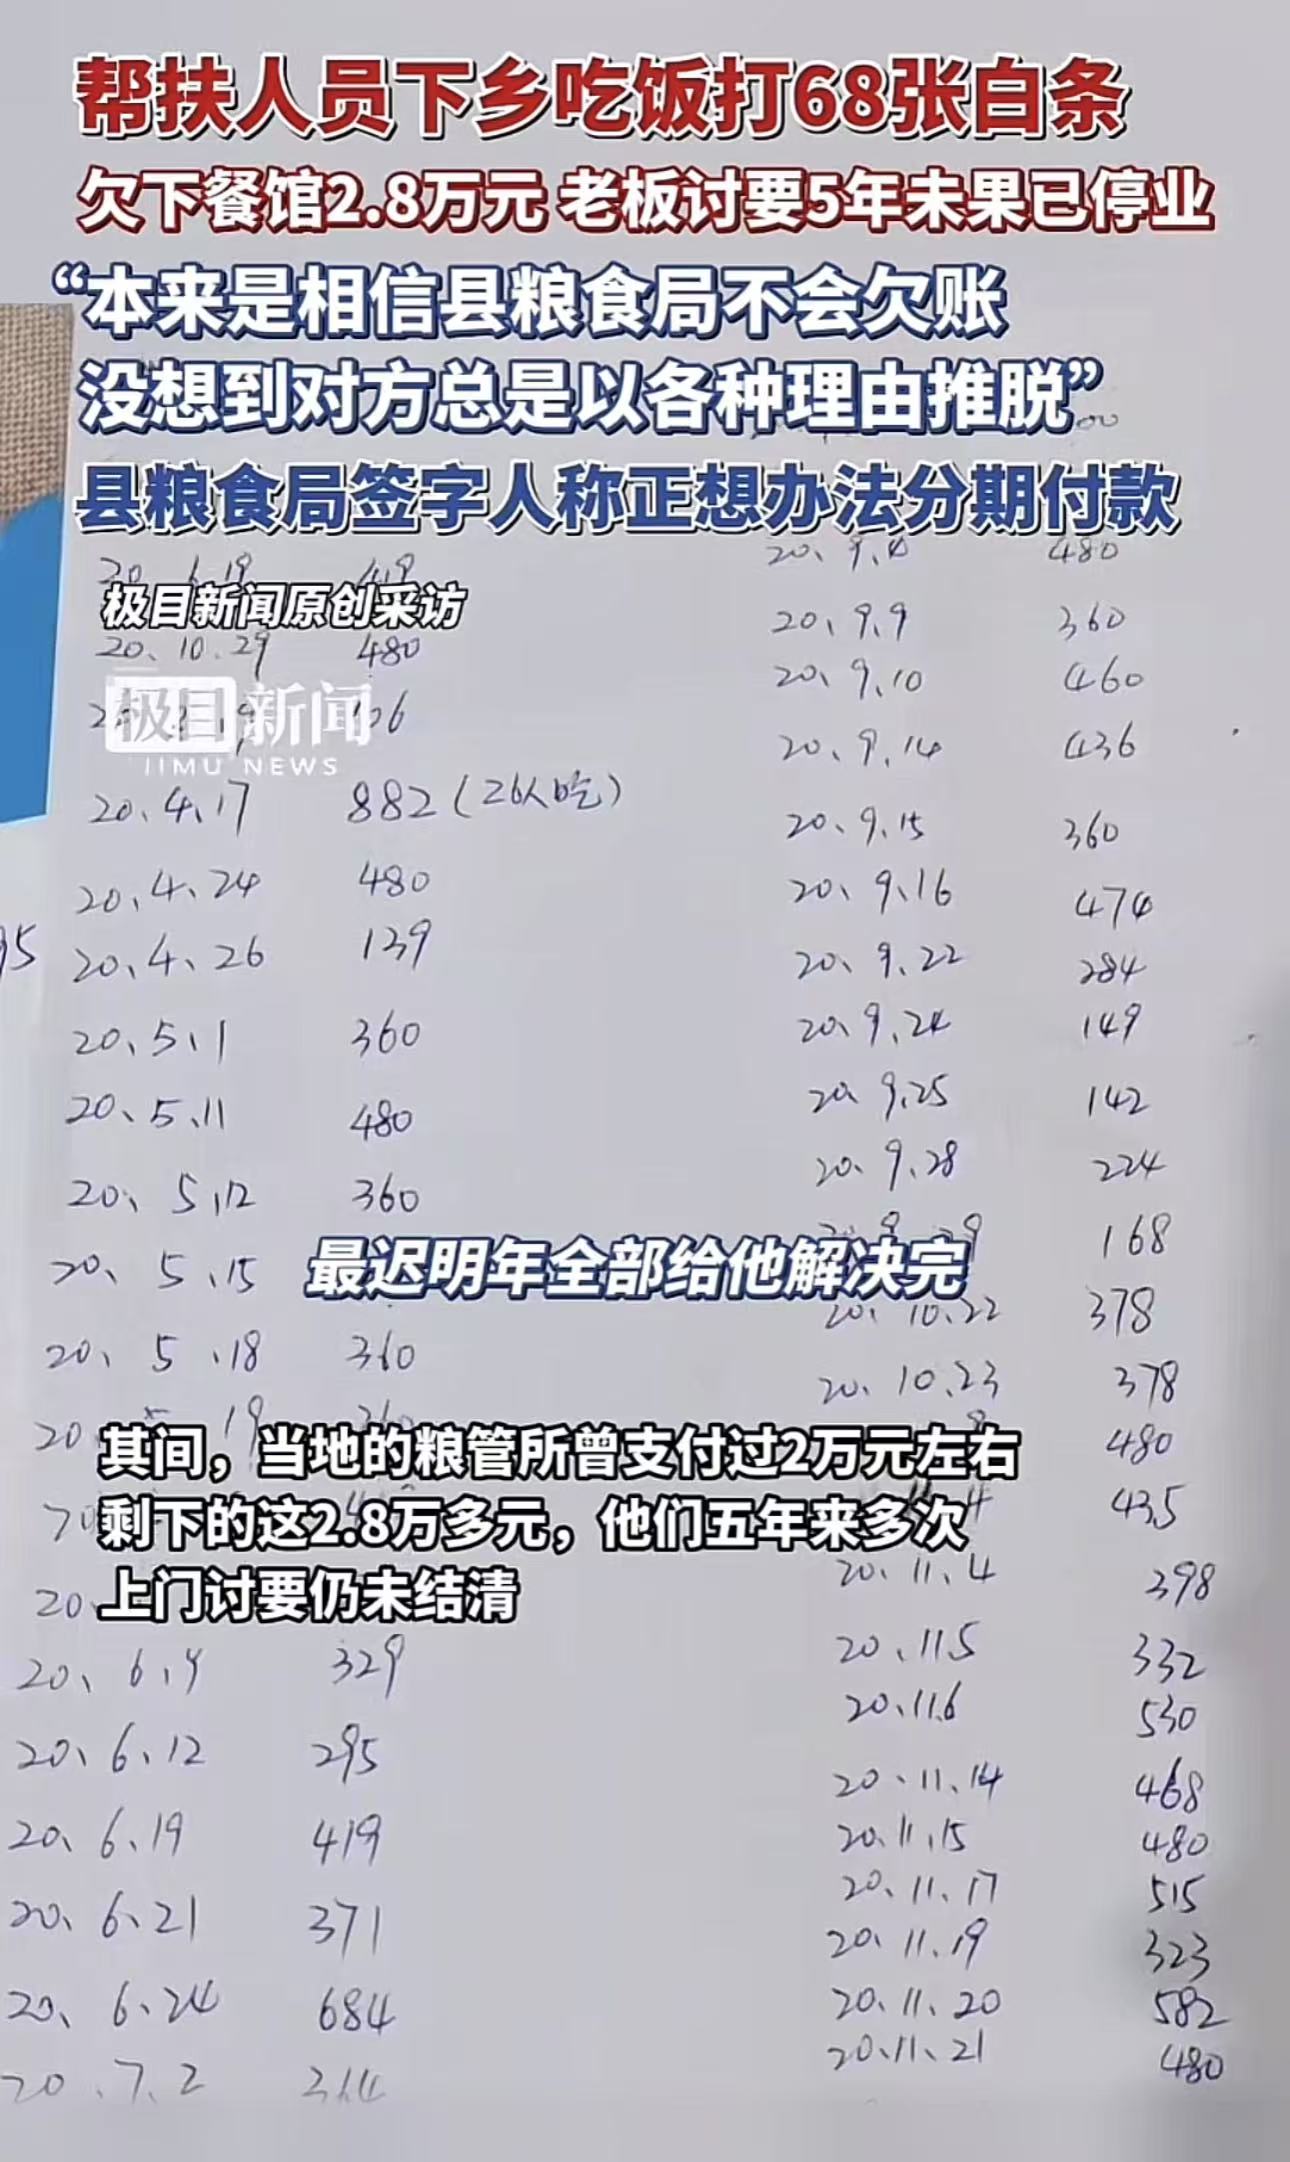 帮扶人员下乡吃饭打68张白条
欠下餐馆2.8万元 老板讨要5年未果已停业
“本来是相信县粮食局不会欠账
没想到对方总是以各种理由推脱”
县粮食局签字人称正想办法分期付款
极目新闻原创采访
极目新闻
JIMU NEWS
20、10.29 480
20、4、17 882（26人吃）
20、4、24 480
95
20、4、26 139
20、5、1 360
20、5、11 480
20、5、12 360
20、5、15
20、5、18 360
20、6、4 329
20、6、12 295
20、6、19 419
20、6、21 371
20、6、24 684
20、7、2
20、9、4 480
20、9、9 360
20、9、10 460
20、9、14 436
20、9、15 360
20、9、16 474
20、9、22 284
20、9、24 149
20、9、25 142
20、9、28 224
168
20、10、22 378
20、10、23 378
480
435
20、11、4 398
20、11、5 332
20、11、6 530
20、11、14 468
20、11、15 480
20、11、17 515
20、11、19 323
20、11、20 582
20、11、21 480
最迟明年全部给他解决完
其间，当地的粮管所曾支付过2万元左右
剩下的这2.8万多元，他们五年来多次
上门讨要仍未结清